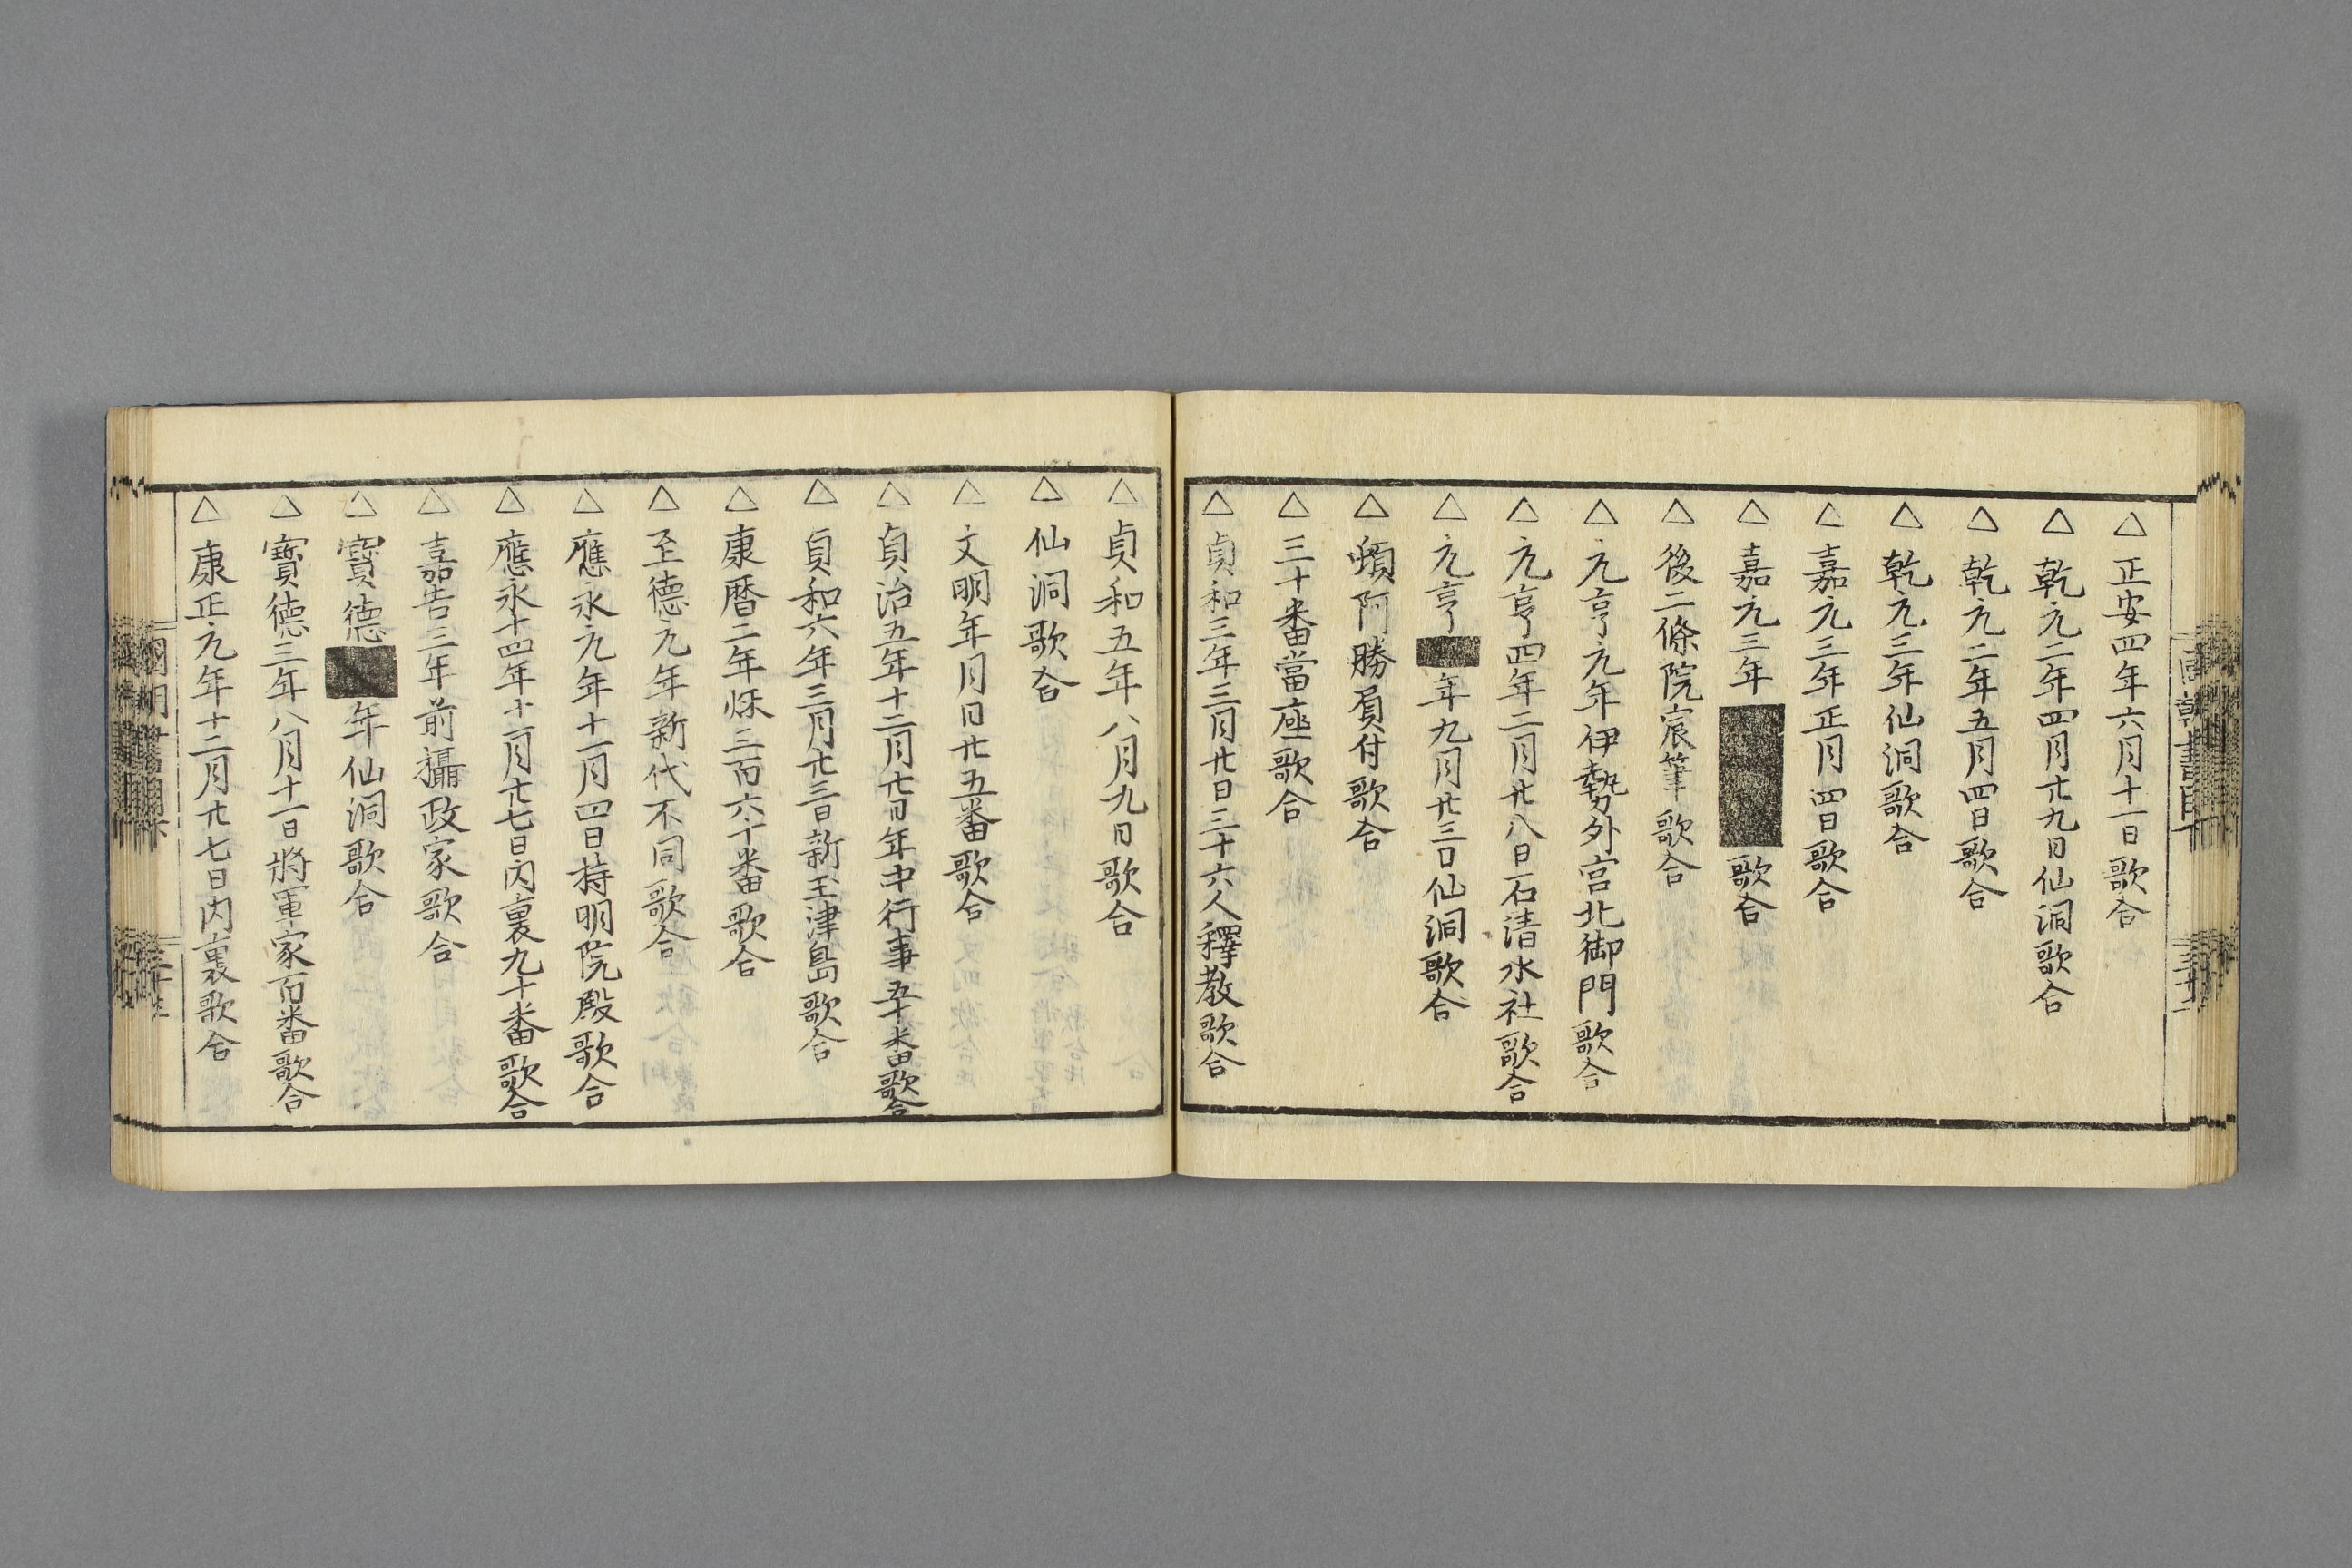 △正安四年六月十一日歌合
△乾元二年四月廿九日仙洞歌合
△乾元二年五月四日歌合
△乾元三年仙洞歌合
△嘉元三年正月四日歌合
△嘉元三年■歌合
△後二條院宸筆歌合
△元亨元年伊勢外宮北御門歌合
△元亨四年二月廿八日石清水社歌合
△元亨■年九月廿三日仙洞歌合
△頓阿勝負付歌合
△三十番當座歌合
△貞和三年三月廿日三十六人釋教歌合
△貞和五年八月九日歌合
△仙洞歌合
△文明年月日廿五番歌合
△貞治五年十二月廿日年中行事五十番歌合
△貞和六年三月廿三日新玉津島歌合
△康暦二年𥝝三百六十番歌合
△至德元年新代不同歌合
△應永九年十一月四日持明院殿歌合
△應永十四年十一月廿七日內裏九十番歌合
△嘉吉三年前攝政家歌合
△寶德■年仙洞歌合
△寶德三年八月十一日將軍家百番歌合
△康正元年十二月廿七日內裏歌合